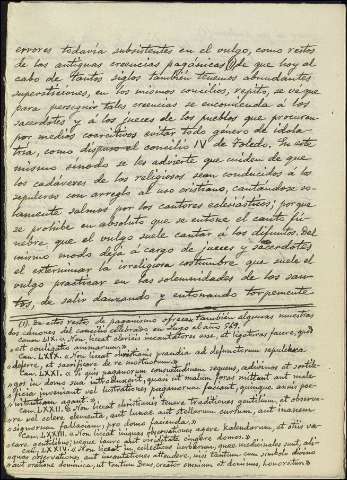 errores todavía subsistentes en el vulgo, como restos
de las antiguas creencias pagánicas (1) de que hoy al
cabo de tantos siglos también tenemos abundantes
supersticiones, en los mismos concilios, repito, se ve que
para perseguir tales creencias se encomienda á los
sacerdotes y á los jueces de los pueblos que procuren
por medios coercitivos evitar todo género de idola-
tría, como dispuso el concilio IV de Toledo. En este
mismo sínodo se les advierte que cuiden de que
los cadáveres de los religiosos sean conducidos á la
sepultura con arreglo al uso cristiano, cantándose so-
lamente salmos por los cantores eclesiásticos; porque
se prohibe en absoluto que se entone el canto fú-
nebre, que el vulgo suele cantar á los difuntos. Del
mismo modo deja á cargo de jueces y sacerdotes
el exterminar la irreligiosa costumbre que suele el
vulgo practicar en las solemnidades de los san-
tos, de salir danzando y entonando torpemente
(1) De estos restos de paganismo ofrecen también algunas muestras
los cánones del concilio celebrado en Lugo el año 569.
Canon LIX. « Non liceat clericis incantatores esse, et ligaturas facere, quod
est colligatio animarum.»
Can. LXIX. « Non liceat christianis prandia ad defunctorum sepulchra
deferre, et sacrificare de re mortuorum.»
Can. LXXI. « Si quis paganorum consuetudinem sequens, adivinos et sortile-
gos in domo sua introduxerit, quasi ut malum foras mittant aut male-
ficia inveniant vel lustrationes paganorum faciant, quinque annis poe-
nitentiam agant.»
Can. LXXII. « Non liceat christianis tenere traditiones gentilium, et observa-
re vel colere elementa, aut lunae aut stellarum cursum, aut inanem
signorum fallaciam, pro domo facienda,»
Can. LXXIII. « Non liceat iniquas observationes agere kalendarum, et otiis va-
care gentilibus, neque lauro aut viriditate cingere domos.»
Can. LXXIV. « Non liceat in collectione herbarum, quae medicinales sunt, ali-
quas observationes aut incantationes attendere, nisi tantum cum símbolo divino
aut oratione dominica, ut tantum Deus, creator omnium et dominus, honoretur.»